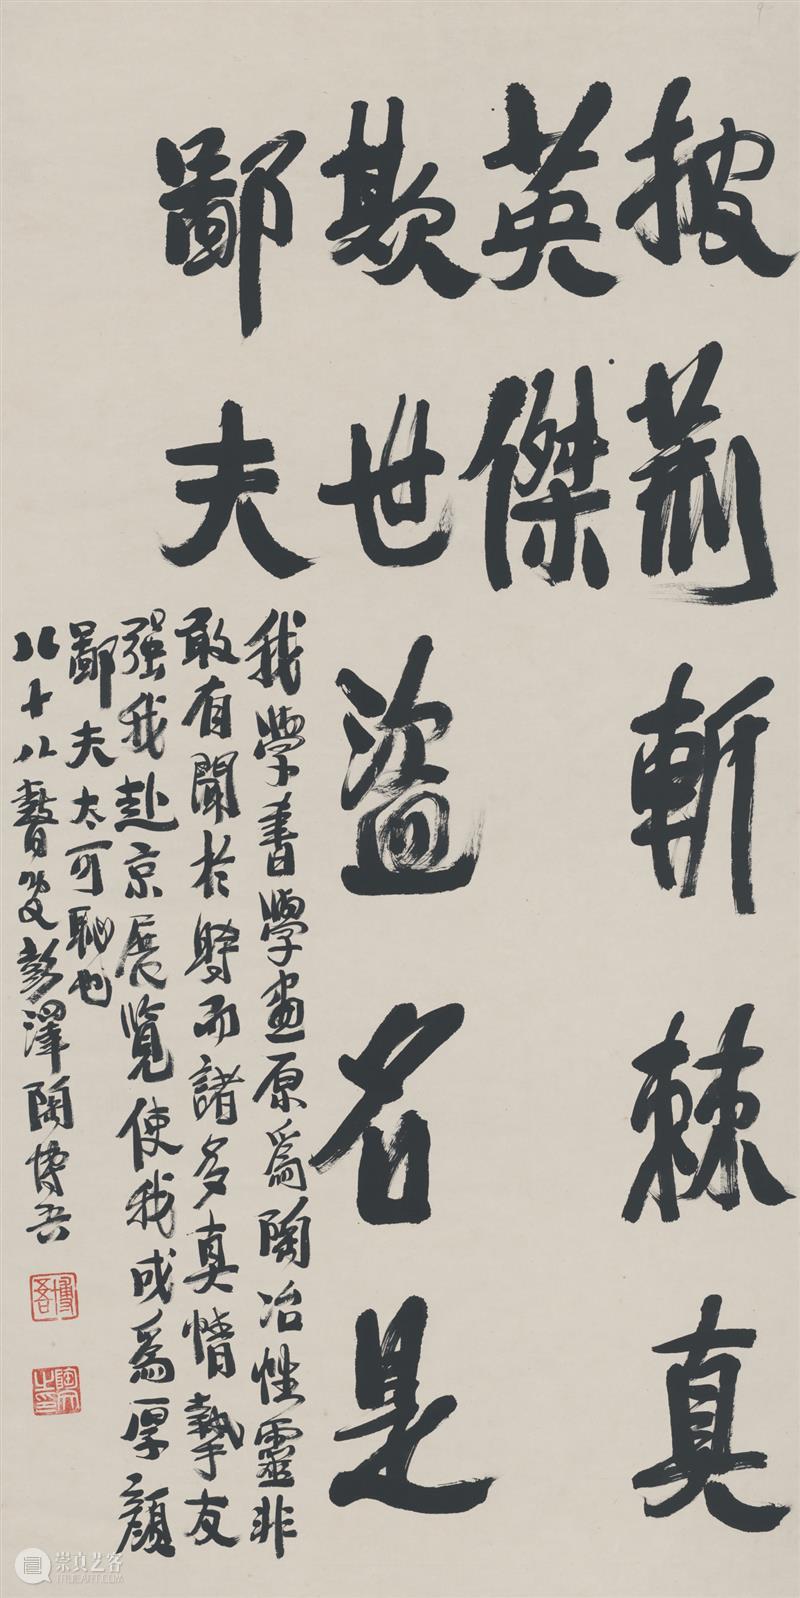 披荆斬棘真
英傑
欺世盗名是
鄙夫
我學書學畫原爲陶冶性靈非
敢有聞於時而諸多真情摯友
强我赴京展覽使我成爲厚顔
鄙夫太可恥也
八十八瞽叟彭澤陶博吾
博吾
陶博吾印
崇真艺客